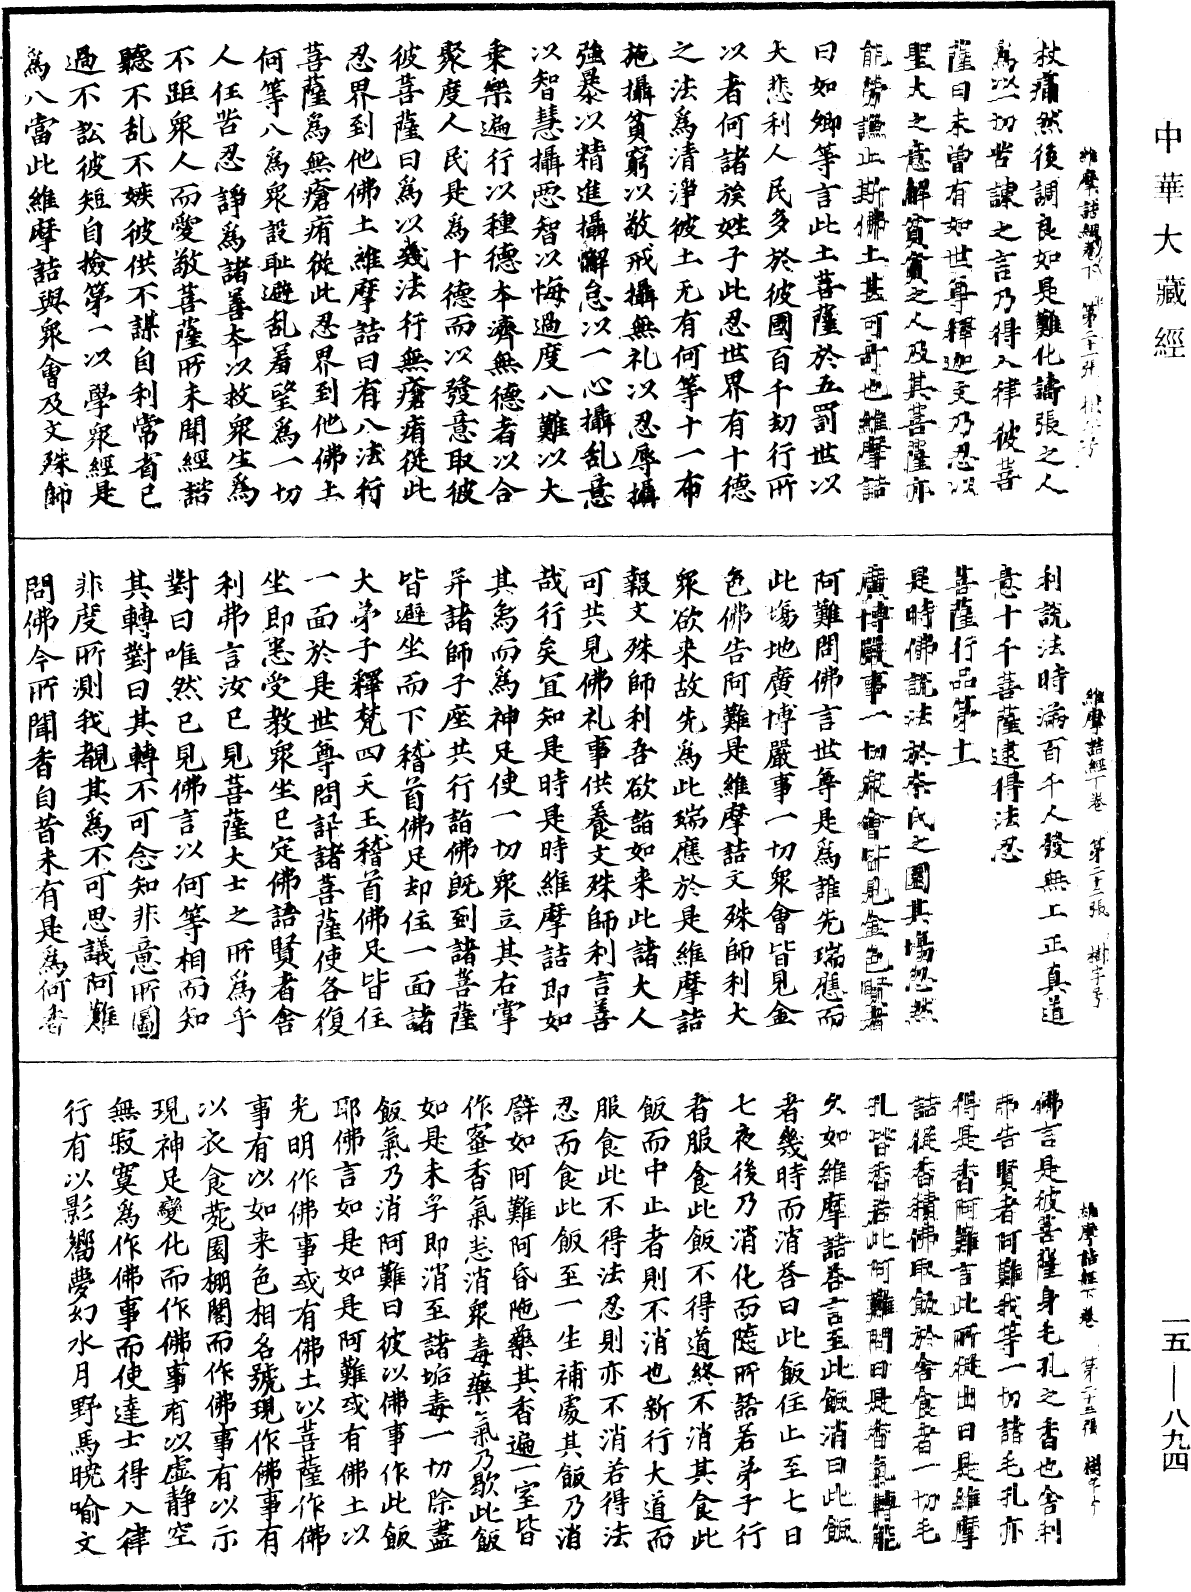 中華大藏經
一五—八九四
維摩詰經卷下 第二十一張 樹字号
杖痛然後調良如是難化譸張之人
為以一切苦諫之言乃得入律彼菩
薩曰未曾有如世尊釋迦文乃忍以
聖大之意解貧貪之人及其菩薩亦
能勞謙止斯佛土甚可奇也維摩詰
曰如卿等言此土菩薩於五罰世以
大悲利人民多於彼國百千劫行所
以者何諸族姓子此忍世界有十德
之法為清淨彼土无有何等十一布
施攝貧窮以敬戒攝無礼以忍辱攝
強暴以精進攝懈怠以一心攝乱意
以智慧攝惡智以悔過度八難以大
乘樂遍行以種德本濟無德者以合
聚度人民是為十德而以發意取彼
彼菩薩曰為以幾法行無瘡痏從此
忍界到他佛土維摩詰曰有八法行
菩薩為無瘡痏從此忍界到他佛土
何等八為眾設耻避乱羞望為一切
人任苦忍諍為諸善本以救眾生為
不距眾人而愛敬菩薩所未聞經諮
聽不乱不嫉彼供不謀自利常省已
過不訟彼短自撿第一以學眾經是
為八當此維摩詰與眾會及文殊師
維摩詰經下卷 第二十二張 樹字号
利說法時滿百千人發無上正真道
意十千菩薩逮得法忍
菩薩行品第十一
是時佛說法於柰氏之園其場忽然
廣博嚴事一切眾會皆見金色賢者
阿難問佛言世尊是為誰先瑞應而
此場地廣博嚴事一切眾會皆見金
色佛告阿難是維摩詰文殊師利大
眾欲来故先為此瑞應於是維摩詰
報文殊師利吾欲詣如来此諸大人
可共見佛礼事供養文殊師利言善
哉行矣宜知是時是時維摩詰即如
其為而為神足使一切眾立其右掌
并諸師子座共行詣佛既到諸菩薩
皆避坐而下稽首佛足却住一面諸
大弟子釋梵四天王稽首佛足皆住
一面於是世尊問訊諸菩薩使各復
坐即悉受教眾坐已定佛語賢者舍
利弗言汝已見菩薩大士之所為乎
對曰唯然已見佛言以何等相而知
其轉對曰其轉不可念知非意所圖
非度所測我覩其為不可思議阿難
問佛今所聞香自昔未有是為何香
維摩詰經下卷 第二十三張 樹字号
佛言是彼菩薩身毛孔之香也舍利
弗告賢者阿難我等一切諸毛孔亦
得是香阿難言此所從出曰是維摩
詰從香積佛取飯於舍食者一切毛
孔皆香若此阿難問曰是香氣轉能
久如維摩詰荅言至此飯消曰此飯
者幾時而消荅曰此飯住止至七日
七夜後乃消化而隨所語若弟子行
者服食此飯不得道終不消其食此
飯而中止者則不消也新行大道而
服食此不得法忍則亦不消若得法
忍而食此飯至一生補處其飯乃消
譬如阿難阿昏陁藥其香遍一室皆
作蜜香氣悉消眾毒藥氣乃歇此飯
如是未孚即消至諸垢毒一切除盡
飯氣乃消阿難曰彼以佛事作此飯
耶佛言如是如是阿難或有佛土以
光明作佛事或有佛土以菩薩作佛
事有以如来色相名號現作佛事有
以衣食苑園棚閣而作佛事有以示
現神足變化而作佛事有以虛靜空
無寂寞為作佛事而使達士得入律
行有以影嚮夢幻水月野馬曉喻文